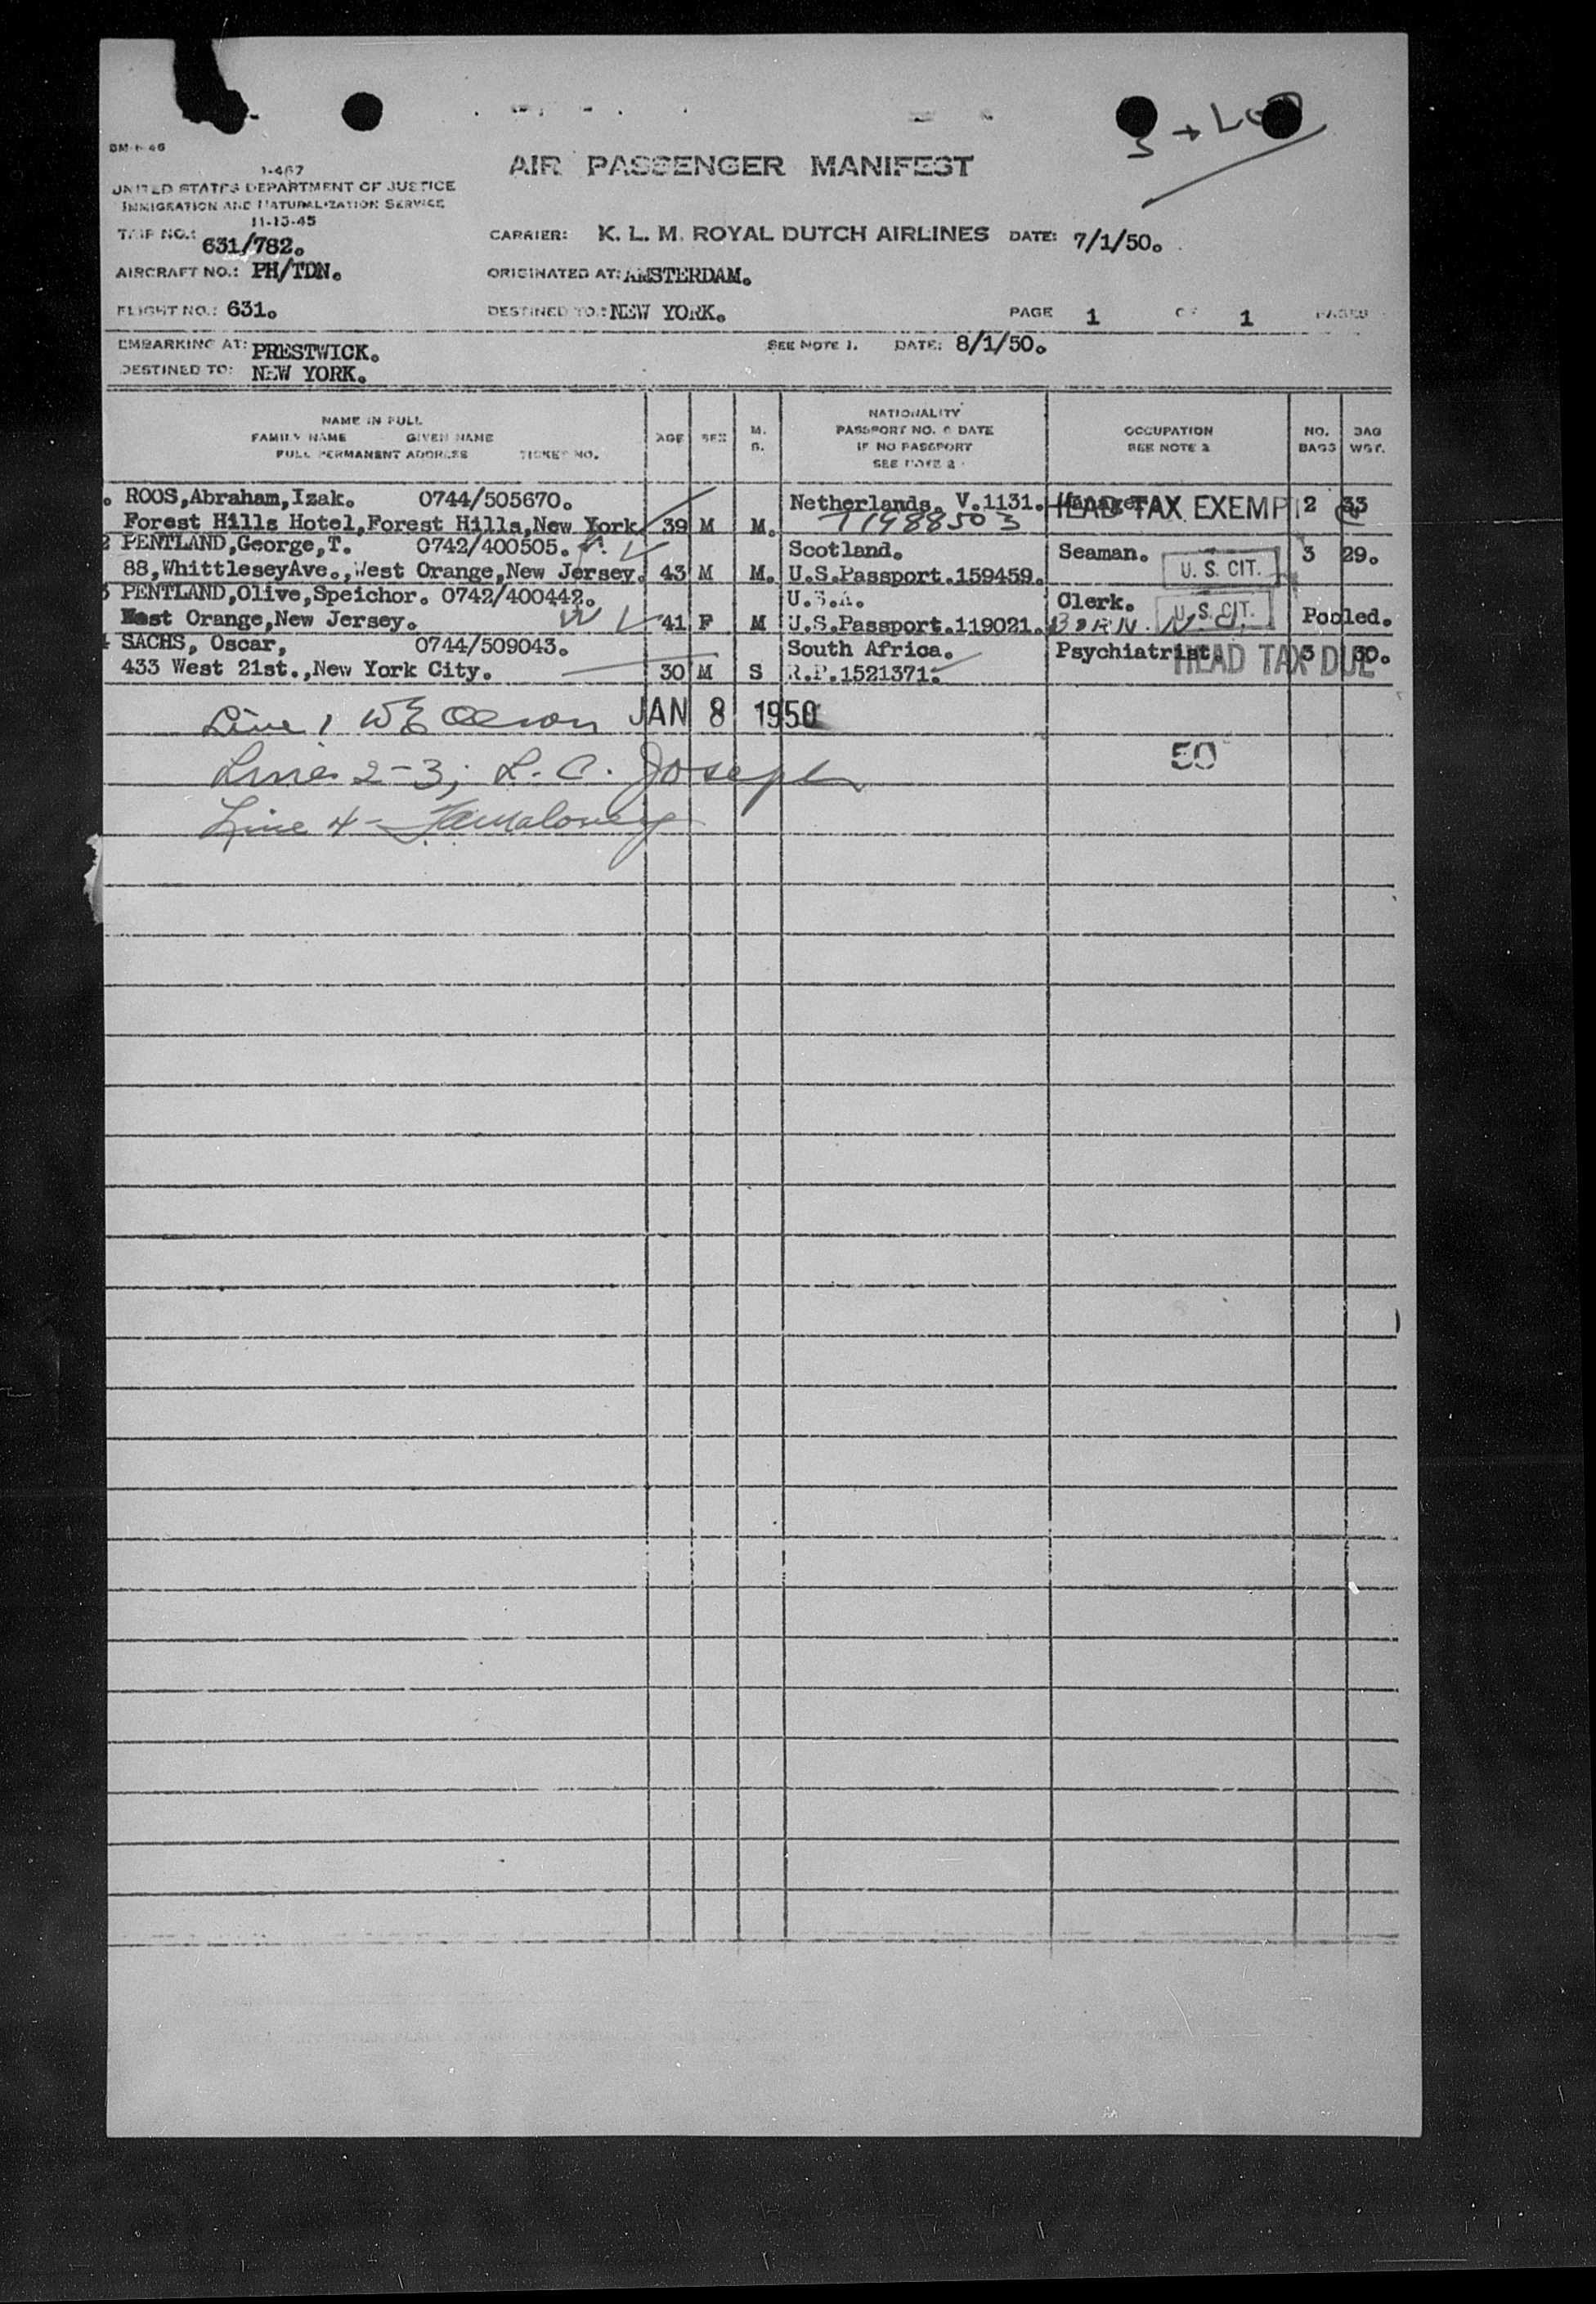 3 +
BM-1-46
1-467
UNITED STATES DEPARTMENT OF JUSTICE
IMMIGRATION AND NATURALIZATION SERVICE
11-13-45
AIR PASSENGER MANIFEST
TRIP NO.: 631/782.
CARRIER: K. L. M. ROYAL DUTCH AIRLINES DATE: 7/1/50.
AIRCRAFT NO.: PH/TDN.
ORIGINATED AT: AMSTERDAM.
FLIGHT NO.: 631.
DESTINED TO: NEW YORK.
PAGE 1 OF 1 PAGES
EMBARKING AT: PRESTWICK.
SEE NOTE 1. DATE: 8/1/50.
DESTINED TO: NEW YORK.
NAME IN FULL
FAMILY NAME GIVEN NAME
FULL PERMANENT ADDRESS TICKET NO.
AGE
SEX
M.
S.
NATIONALITY
PASSPORT NO. & DATE
IF NO PASSPORT
SEE NOTE 2
OCCUPATION
SEE NOTE 3
NO.
BAGS
BAG
WGT.
ROOS,Abraham,Izak. 0744/505670. Netherlands. V.1131. Manager HEAD TAX EXEMPT 2 33
Forest Hills Hotel,Forest Hills,New York 39 M M. 71988503
2 PENTLAND,George,T. 0742/400505. Scotland. Seaman. U. S. CIT. 3 29.
88,WhittleseyAve.,West Orange,New Jersey. 43 M M. U.S.Passport.159459.
3 PENTLAND,Olive,Speichor. 0742/400442. U.S.A. Clerk. U. S. CIT. Pooled.
West Orange,New Jersey. 41 F M U.S.Passport.119021. BORN. N. J.
4 SACHS, Oscar, 0744/509043. South Africa. Psychiatrist HEAD TAX DUE 3 30.
433 West 21st.,New York City. 30 M S R.P.1521371.
Line 1 WE Olson JAN 8 1950
Lines 2-3; L. C. Joseph
50
Line 4 - Maloney